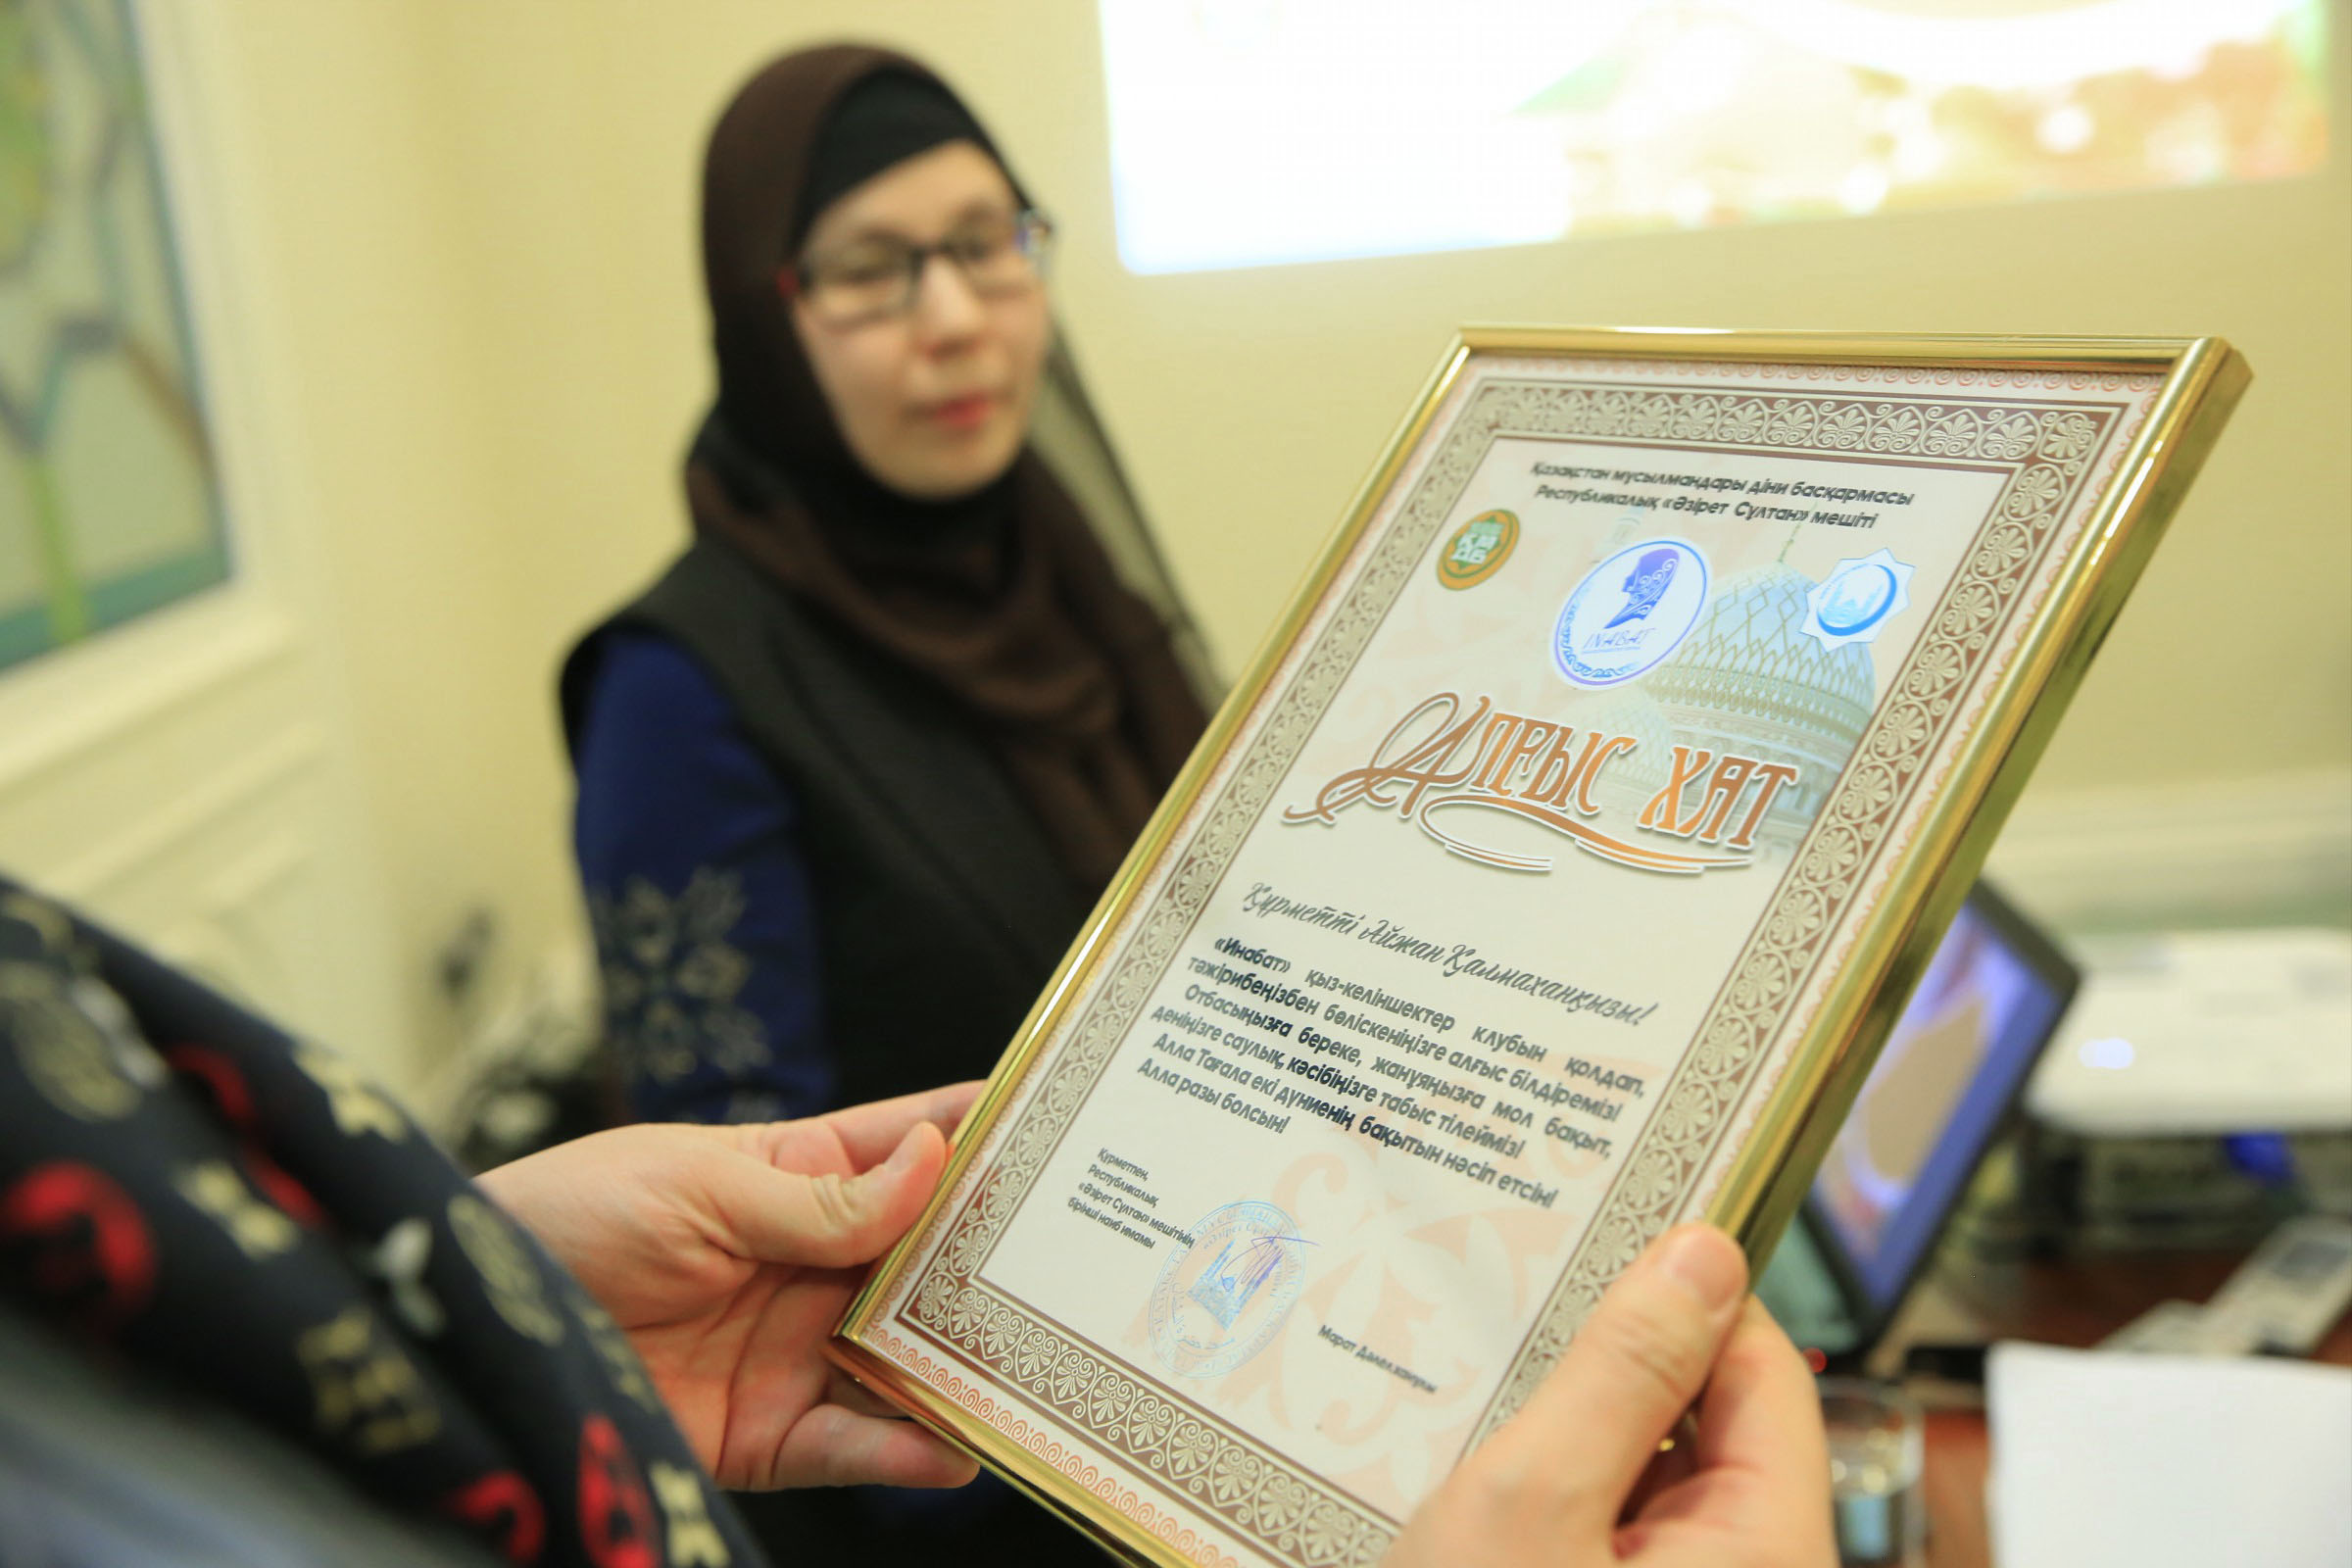 Қазақстан мұсылмандары діни басқармасы
Республикалық «Әзірет Сұлтан» мешіті
ҚМДБ
INABAT
АЛҒЫС ХАТ
Құрметті Айжан Қалмаханқызы!
«Инабат» қыз-келіншектер клубын қолдап,
тәжірибеңізбен бөліскеніңізге алғыс білдіреміз!
Отбасыңызға береке, жанұяңызға мол бақыт,
деніңізге саулық, кәсібіңізге табыс тілейміз!
Алла Тағала екі дүниенің бақытын нәсіп етсін!
Алла разы болсын!
Құрметпен,
Республикалық
«Әзірет Сұлтан» мешітінің
бірінші наиб имамы
Марат Дәлелханұлы